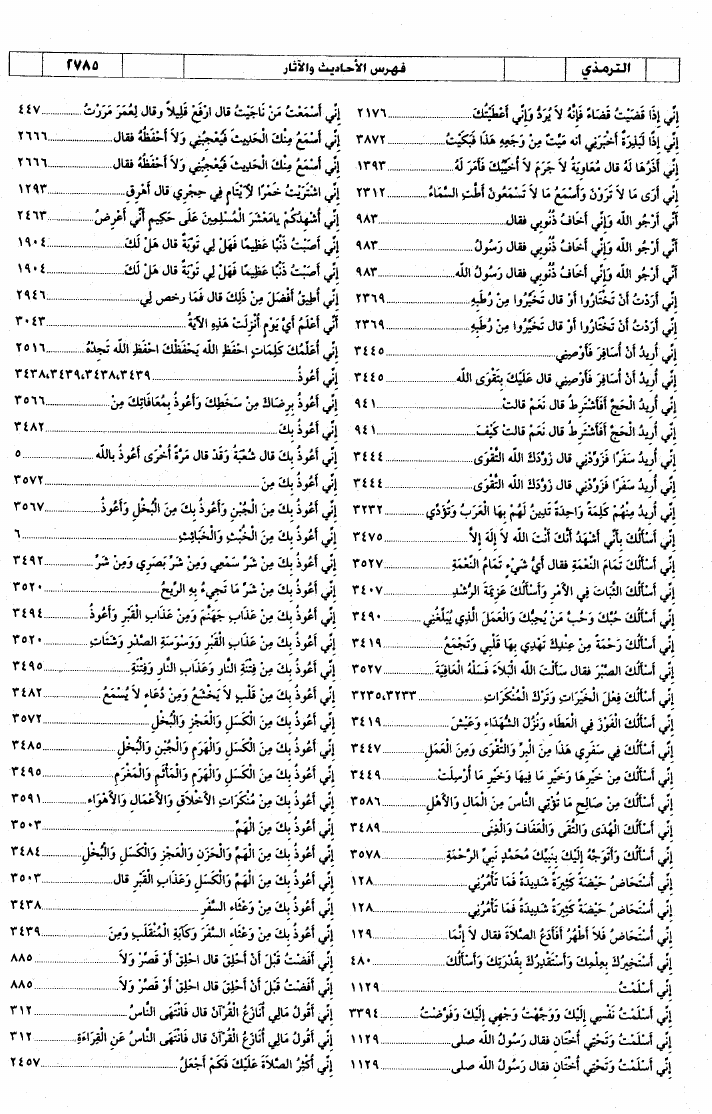 الترمذي فهرس الأحاديث والآثار ٢٧٨٥
إِنِّي إِذَا قَضَيْتُ قَضَاءً فَإِنَّهُ لاَ يُرَدُّ وَإِنِّي أَعْطَيْتُكَ ٢١٧٦
إِنِّي إِذًا لَبَذِرَةٌ أَخْبَرَنِي أنه مَيِّتٌ مِنْ وَجَعِهِ هَذَا فَبَكَيْتُ ٣٨٧٢
إِنِّي أَذَرُهَا لَهُ قال مُعَاوِيَةُ لاَ جَرَمَ لاَ أُخَيِّبُكَ فَأَمَرَ لَهُ ١٣٩٣
إِنِّي أَرَى مَا لاَ تَرَوْنَ وَأَسْمَعُ مَا لاَ تَسْمَعُونَ أَطَّتِ السَّمَاءُ ٢٣١٢
أَنِّي أَرْجُو اللَّه وَإِنِّي أَخَافُ ذُنُوبِي فقال ٩٨٣
أَنِّي أَرْجُو اللَّه وَإِنِّي أَخَافُ ذُنُوبِي فقال رَسُولُ ٩٨٣
أَنِّي أَرْجُو اللَّه وَإِنِّي أَخَافُ ذُنُوبِي فقال رَسُولُ اللَّه ٩٨٣
إِنِّي أَرَدْتُ أَنْ تَخْتَارُوا أَوْ قال تَخَيَّرُوا مِنْ رُطَبِهِ ٢٣٦٩
إِنِّي أَرَدْتُ أَنْ تَخْتَارُوا أَوْ قال تَخَيَّرُوا مِنْ رُطَبِهِ ٢٣٦٩
إِنِّي أُرِيدُ أَنْ أُسَافِرَ فَأَوْصِنِي ٣٤٤٥
إِنِّي أُرِيدُ أَنْ أُسَافِرَ فَأَوْصِنِي قال عَلَيْكَ بِتَقْوَى اللَّه ٣٤٤٥
إِنِّي أُرِيدُ الْحَجَّ أَفَأَشْتَرِطُ قال نَعَمْ قالتْ ٩٤١
إِنِّي أُرِيدُ الْحَجَّ أَفَأَشْتَرِطُ قال نَعَمْ قالتْ كَيْفَ ٩٤١
إِنِّي أُرِيدُ سَفَرًا فَزَوِّدْنِي قال زَوَّدَكَ اللَّه التَّقْوَى ٣٤٤٤
إِنِّي أُرِيدُ سَفَرًا فَزَوِّدْنِي قال زَوَّدَكَ اللَّه التَّقْوَى ٣٤٤٤
إِنِّي أُرِيدُ مِنْهُمْ كَلِمَةً وَاحِدَةً تَدِينُ لَهُمْ بِهَا الْعَرَبُ وَتُؤَدِّي ٣٢٣٢
إِنِّي أَسْأَلُكَ بِأَنِّي أَشْهَدُ أَنَّكَ أَنْتَ اللَّه لاَ إِلَهَ إِلاَّ ٣٤٧٥
إِنِّي أَسْأَلُكَ تَمَامَ النِّعْمَةِ فقال أَيُّ شَيْءٍ تَمَامُ النِّعْمَةِ ٣٥٢٧
إِنِّي أَسْأَلُكَ الثَّبَاتَ فِي الأَمْرِ وَأَسْأَلُكَ عَزِيمَةَ الرُّشْدِ ٣٤٠٧
إِنِّي أَسْأَلُكَ حُبَّكَ وَحُبَّ مَنْ يُحِبُّكَ وَالْعَمَلَ الَّذِي يُبَلِّغُنِي ٣٤٩٠
إِنِّي أَسْأَلُكَ رَحْمَةً مِنْ عِنْدِكَ تَهْدِي بِهَا قَلْبِي وَتَجْمَعُ ٣٤١٩
إِنِّي أَسْأَلُكَ الصَّبْرَ فقال سَأَلْتَ اللَّه الْبَلاَءَ فَسَلْهُ الْعَافِيَةَ ٣٥٢٧
إِنِّي أَسْأَلُكَ فِعْلَ الْخَيْرَاتِ وَتَرْكَ الْمُنْكَرَاتِ ٣٢٣٥،٣٢٣٣
إِنِّي أَسْأَلُكَ الْفَوْزَ فِي الْعَطَاءِ وَنُزُلَ الشُّهَدَاءِ وَعَيْشَ ٣٤١٩
إِنِّي أَسْأَلُكَ فِي سَفَرِي هَذَا مِنَ الْبِرِّ وَالتَّقْوَى وَمِنَ الْعَمَلِ ٣٤٤٧
إِنِّي أَسْأَلُكَ مِنْ خَيْرِهَا وَخَيْرِ مَا فِيهَا وَخَيْرِ مَا أُرْسِلَتْ ٣٤٤٩
إِنِّي أَسْأَلُكَ مِنْ صَالِحِ مَا تُؤْتِي النَّاسَ مِنَ الْمَالِ وَالأَهْلِ ٣٥٨٦
إِنِّي أَسْأَلُكَ الْهُدَى وَالتُّقَى وَالْعَفَافَ وَالْغِنَى ٣٤٨٩
إِنِّي أَسْأَلُكَ وَأَتَوَجَّهُ إِلَيْكَ بِنَبِيِّكَ مُحَمَّدٍ نَبِيِّ الرَّحْمَةِ ٣٥٧٨
إِنِّي أُسْتَحَاضُ حَيْضَةً كَثِيرَةً شَدِيدَةً فَمَا تَأْمُرُنِي ١٢٨
إِنِّي أُسْتَحَاضُ حَيْضَةً كَثِيرَةً شَدِيدَةً فَمَا تَأْمُرُنِي ١٢٨
إِنِّي أُسْتَحَاضُ فَلاَ أَطْهُرُ أَفَأَدَعُ الصَّلاَةَ فقال لاَ إِنَّمَا ١٢٩
إِنِّي أَسْتَخِيرُكَ بِعِلْمِكَ وَأَسْتَقْدِرُكَ بِقُدْرَتِكَ وَأَسْأَلُكَ ٤٨٠
إِنِّي أَسْلَمْتُ ١١٢٩
إِنِّي أَسْلَمْتُ نَفْسِي إِلَيْكَ وَوَجَّهْتُ وَجْهِي إِلَيْكَ وَفَوَّضْتُ ٣٣٩٤
إِنِّي أَسْلَمْتُ وَتَحْتِي أُخْتَانِ فقال رَسُولُ اللَّه صلى ١١٢٩
إِنِّي أَسْلَمْتُ وَتَحْتِي أُخْتَانِ فقال رَسُولُ اللَّه صلى ١١٢٩
إِنِّي أَسْمَعْتُ مَنْ نَاجَيْتُ قال ارْفَعْ قَلِيلاً وقال لِعُمَرَ مَرَرْتُ ٤٤٧
إِنِّي أَسْمَعُ مِنْكَ الْحَدِيثَ فَيُعْجِبُنِي وَلاَ أَحْفَظُهُ فقال ٢٦٦٦
إِنِّي أَسْمَعُ مِنْكَ الْحَدِيثَ فَيُعْجِبُنِي وَلاَ أَحْفَظُهُ فقال ٢٦٦٦
إِنِّي اشْتَرَيْتُ خَمْرًا لأَيْتَامٍ فِي حِجْرِي قال أَهْرِقِ ١٢٩٣
إِنِّي أُشْهِدُكُمْ يامَعْشَرَ الْمُسْلِمِينَ عَلَى حَكِيمٍ أَنِّي أَعْرِضُ ٢٤٦٣
إِنِّي أَصَبْتُ ذَنْبًا عَظِيمًا فَهَلْ لِي تَوْبَةٌ قال هَلْ لَكَ ١٩٠٤
إِنِّي أَصَبْتُ ذَنْبًا عَظِيمًا فَهَلْ لِي تَوْبَةٌ قال هَلْ لَكَ ١٩٠٤
إِنِّي أُطِيقُ أَفْضَلَ مِنْ ذَلِكَ قال فَمَا رخص لِي ٢٩٤٦
أَنِّي أَعْلَمُ أَيَّ يَوْمٍ أُنْزِلَتْ هَذِهِ الآيَةُ ٣٠٤٣
إِنِّي أُعَلِّمُكَ كَلِمَاتٍ احْفَظِ اللَّه يَحْفَظْكَ احْفَظِ اللَّه تَجِدْهُ ٢٥١٦
إِنِّي أَعُوذُ ٣٤٣٨،٣٤٣٩،٣٤٣٨،٣٤٣٩
إِنِّي أَعُوذُ بِرِضَاكَ مِنْ سَخَطِكَ وَأَعُوذُ بِمُعَافَاتِكَ مِنْ ٣٥٦٦
إِنِّي أَعُوذُ بِكَ ٣٤٨٢
إِنِّي أَعُوذُ بِكَ قال شُعْبَةُ وَقَدْ قال مَرَّةً أُخْرَى أَعُوذُ باللَّه ٥
إِنِّي أَعُوذُ بِكَ مِنَ ٣٥٧٢
إِنِّي أَعُوذُ بِكَ مِنَ الْجُبْنِ وَأَعُوذُ بِكَ مِنَ الْبُخْلِ وَأَعُوذُ ٣٥٦٧
إِنِّي أَعُوذُ بِكَ مِنَ الْخُبْثِ وَالْخَبَائِثِ ٦
إِنِّي أَعُوذُ بِكَ مِنْ شَرِّ سَمْعِي وَمِنْ شَرِّ بَصَرِي وَمِنْ شَرِّ ٣٤٩٢
إِنِّي أَعُوذُ بِكَ مِنْ شَرِّ مَا تَجِيءُ بِهِ الرِّيحُ ٣٥٢٠
إِنِّي أَعُوذُ بِكَ مِنْ عَذَابِ جَهَنَّمَ وَمِنْ عَذَابِ الْقَبْرِ وَأَعُوذُ ٣٤٩٤
إِنِّي أَعُوذُ بِكَ مِنْ عَذَابِ الْقَبْرِ وَوَسْوَسَةِ الصَّدْرِ وَشَتَاتِ ٣٥٢٠
إِنِّي أَعُوذُ بِكَ مِنْ فِتْنَةِ النَّارِ وَعَذَابِ النَّارِ وَفِتْنَةِ ٣٤٩٥
إِنِّي أَعُوذُ بِكَ مِنْ قَلْبٍ لاَ يَخْشَعُ وَمِنْ دُعَاءٍ لاَ يُسْمَعُ ٣٤٨٢
إِنِّي أَعُوذُ بِكَ مِنَ الْكَسَلِ وَالْعَجْزِ وَالْبُخْلِ ٣٥٧٢
إِنِّي أَعُوذُ بِكَ مِنَ الْكَسَلِ وَالْهَرَمِ وَالْجُبْنِ وَالْبُخْلِ ٣٤٨٥
إِنِّي أَعُوذُ بِكَ مِنَ الْكَسَلِ وَالْهَرَمِ وَالْمَأْثَمِ وَالْمَغْرَمِ ٣٤٩٥
إِنِّي أَعُوذُ بِكَ مِنْ مُنْكَرَاتِ الأَخْلاَقِ وَالأَعْمَالِ وَالأَهْوَاءِ ٣٥٩١
إِنِّي أَعُوذُ بِكَ مِنَ الْهَمِّ ٣٥٠٣
إِنِّي أَعُوذُ بِكَ مِنَ الْهَمِّ وَالْحَزَنِ وَالْعَجْزِ وَالْكَسَلِ وَالْبُخْلِ ٣٤٨٤
إِنِّي أَعُوذُ بِكَ مِنَ الْهَمِّ وَالْكَسَلِ وَعَذَابِ الْقَبْرِ قال ٣٥٠٣
إِنِّي أَعُوذُ بِكَ مِنْ وَعْثَاءِ السَّفَرِ ٣٤٣٨
إِنِّي أَعُوذُ بِكَ مِنْ وَعْثَاءِ السَّفَرِ وَكَآبَةِ الْمُنْقَلَبِ وَمِنَ ٣٤٣٩
إِنِّي أَفَضْتُ قَبْلَ أَنْ أَحْلِقَ قال احْلِقْ أَوْ قَصِّرْ وَلاَ ٨٨٥
إِنِّي أَفَضْتُ قَبْلَ أَنْ أَحْلِقَ قال احْلِقْ أَوْ قَصِّرْ وَلاَ ٨٨٥
إِنِّي أَقُولُ مَالِي أُنَازَعُ الْقُرْآنَ قال فَانْتَهَى النَّاسُ ٣١٢
إِنِّي أَقُولُ مَالِي أُنَازَعُ الْقُرْآنَ قال فَانْتَهَى النَّاسُ عَنِ الْقِرَاءَةِ ٣١٢
إِنِّي أُكْثِرُ الصَّلاَةَ عَلَيْكَ فَكَمْ أَجْعَلُ ٢٤٥٧